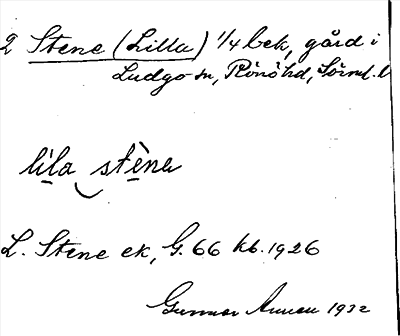 2 Stene (Lilla) 1/4 bek, gård i
Ludgo sn, Rönö hd, Sörml. l
lìla stèna
L. Stene ek, G. 66 kb. 1926
Gunnar 1932